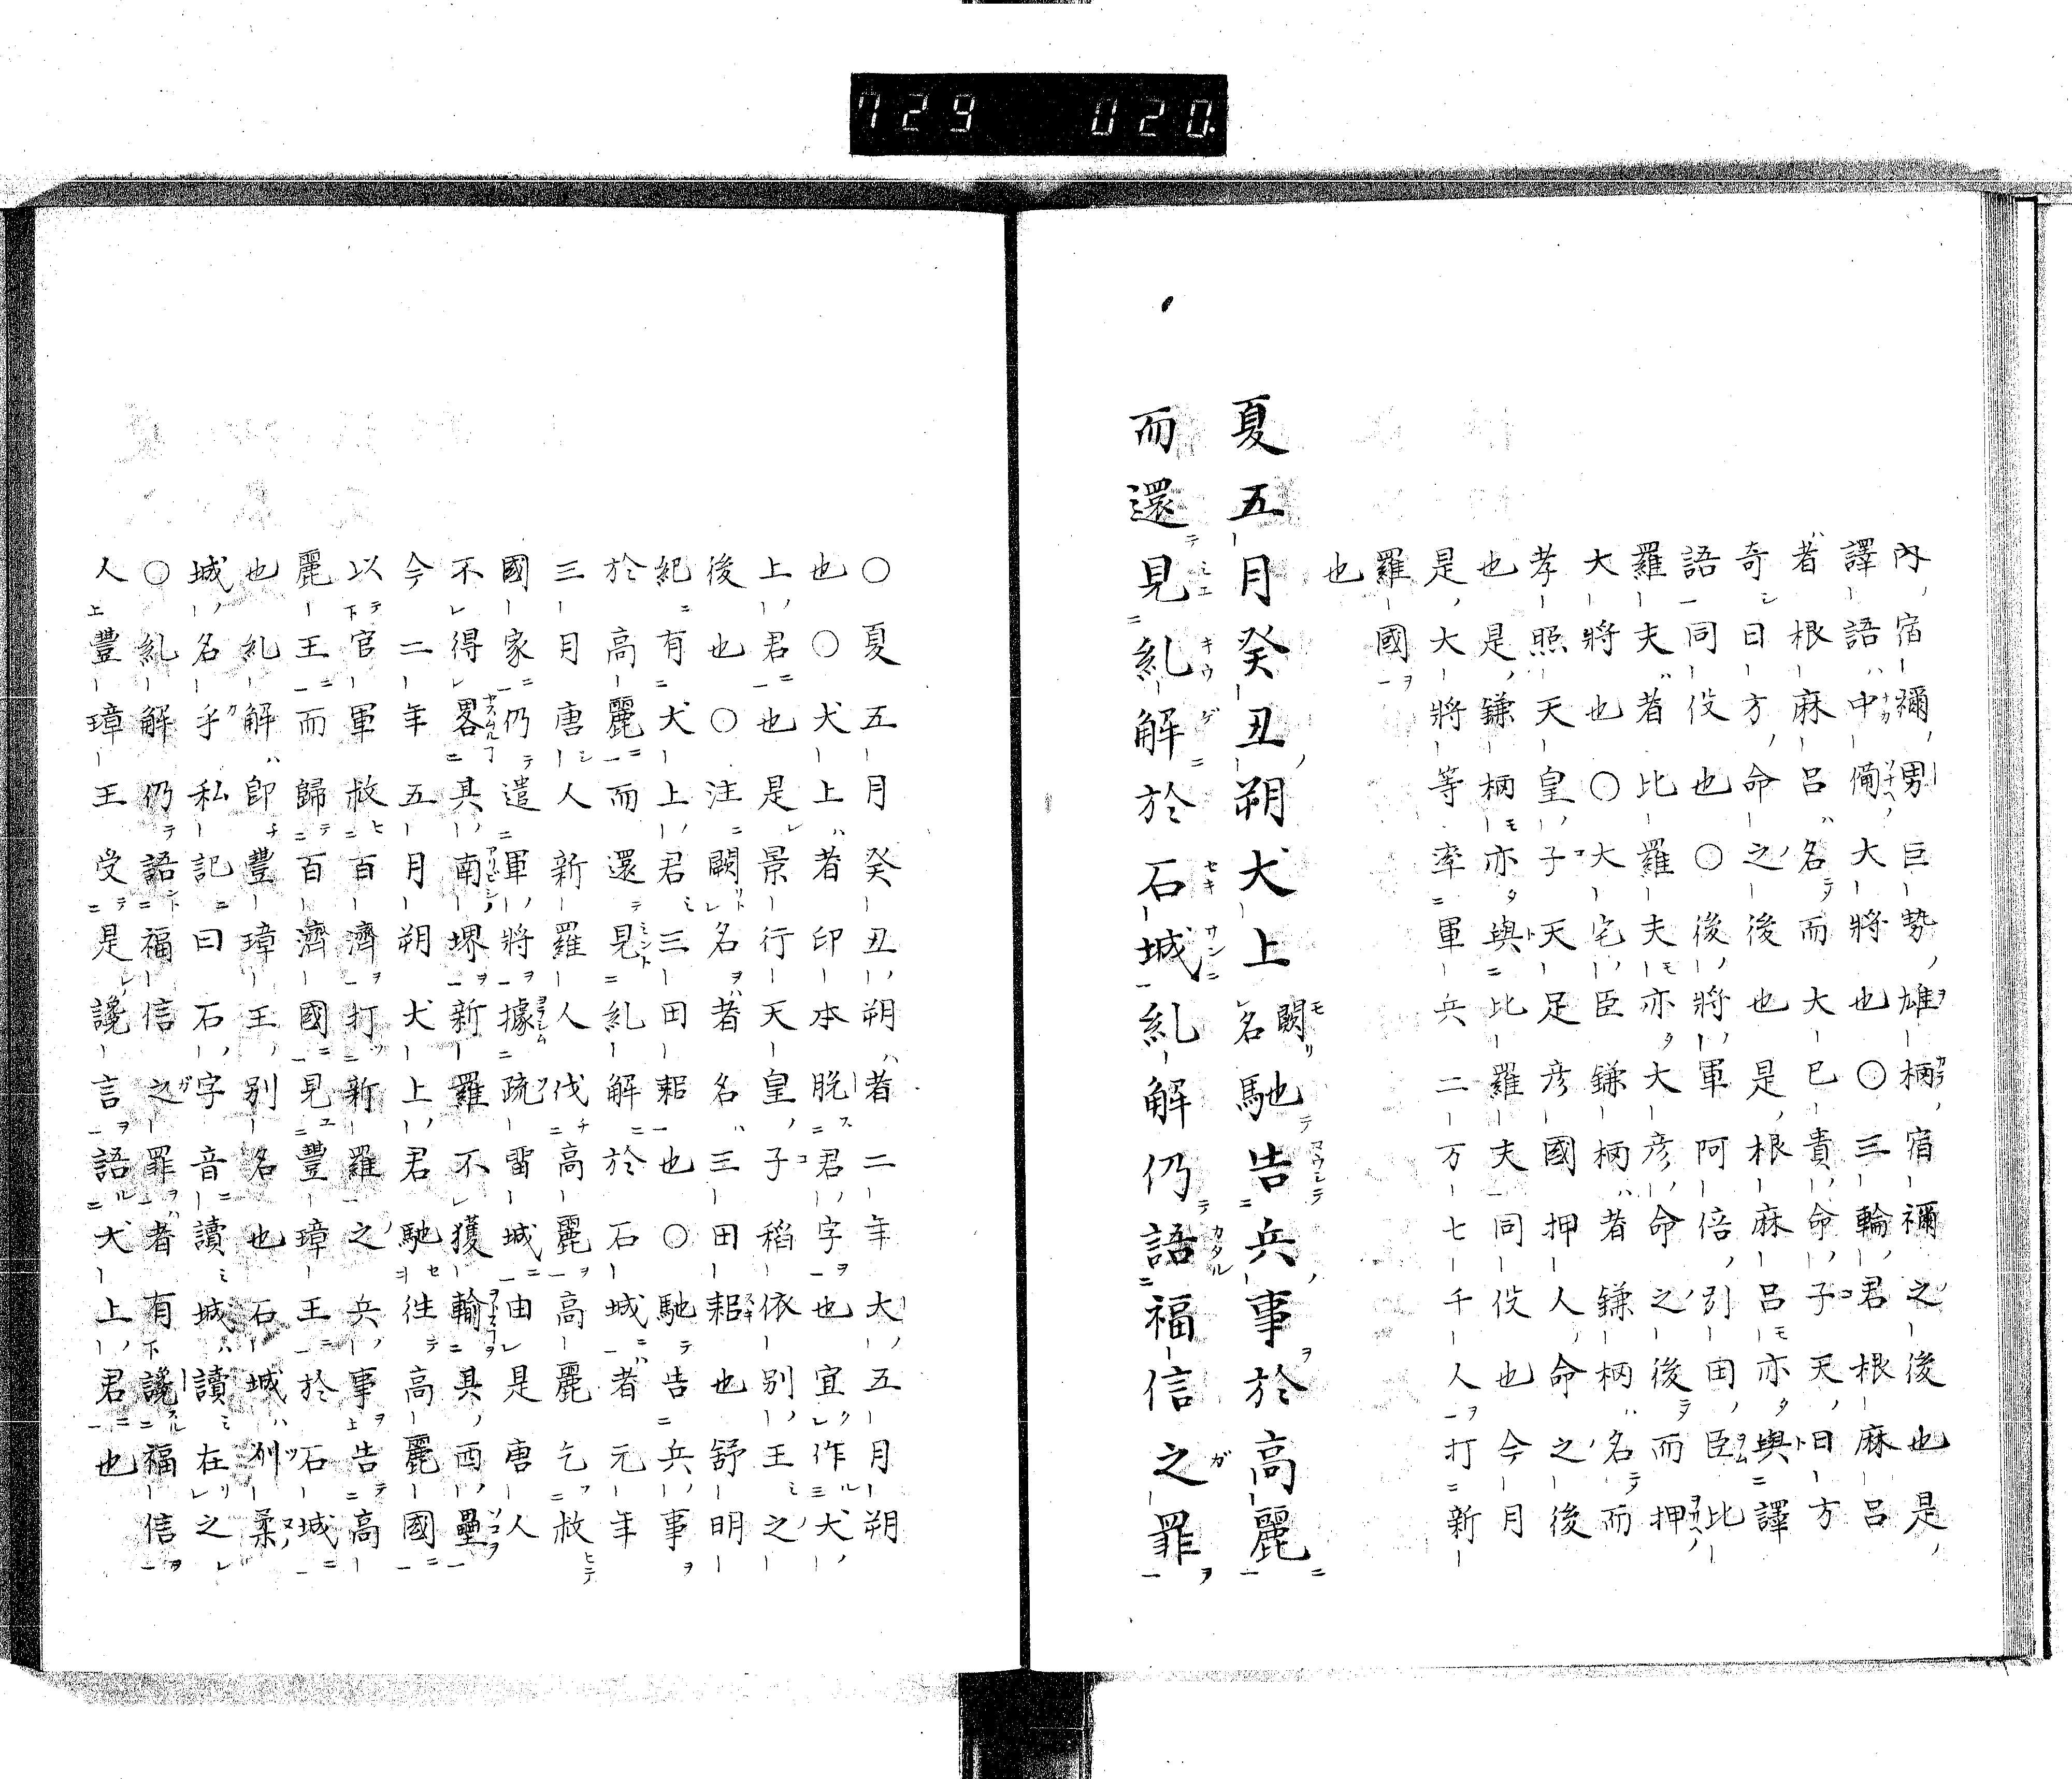 729 020.
内宿禰男巨勢雄柄宿禰之後也是
譯語中備大將也〇三輪君根麻呂
者根麻呂名而大巳貴命子天日方
奇日方命之後也是根麻呂亦與譯
語同伇也〇後將軍阿倍引田臣比
羅夫者比羅夫亦大彦命之後而押
大將也〇大宅臣鎌柄者鎌柄名而
孝照天皇子天足彦國押人命之後
也是鎌柄亦與比羅夫同伇也今月
是大將等率軍兵二万七千人打新
羅國
也
夏五月癸丑朔犬上闕名馳告兵事於高麗
而還見糺解於石城糺解仍語福信之罪
〇夏五月癸丑朔者二年大五月朔
也〇犬上者印本脱君字也宜作犬
上君也是景行天皇子稻依別王之
後也〇注闕名者名三田耜也舒明
紀有犬上君三田耜也〇馳告兵事
於高麗而還見糺解於石城者元年
三月唐人新羅人伐高麗高麗乞救
國家仍遣軍將據疏留城由是唐人
不得畧其南堺新羅不獲輸其西壘
今二年五月朔犬上君馳徃高麗國
以官軍救百濟打新羅之兵事告高
麗王而歸百濟國見豐璋王於石城
也糺解卽豐璋王別名也石城列柔
城名乎私記曰石字音讀城讀在之
〇糺解仍語福信之罪者有讒福信
人豐璋王受是讒言語犬上君也